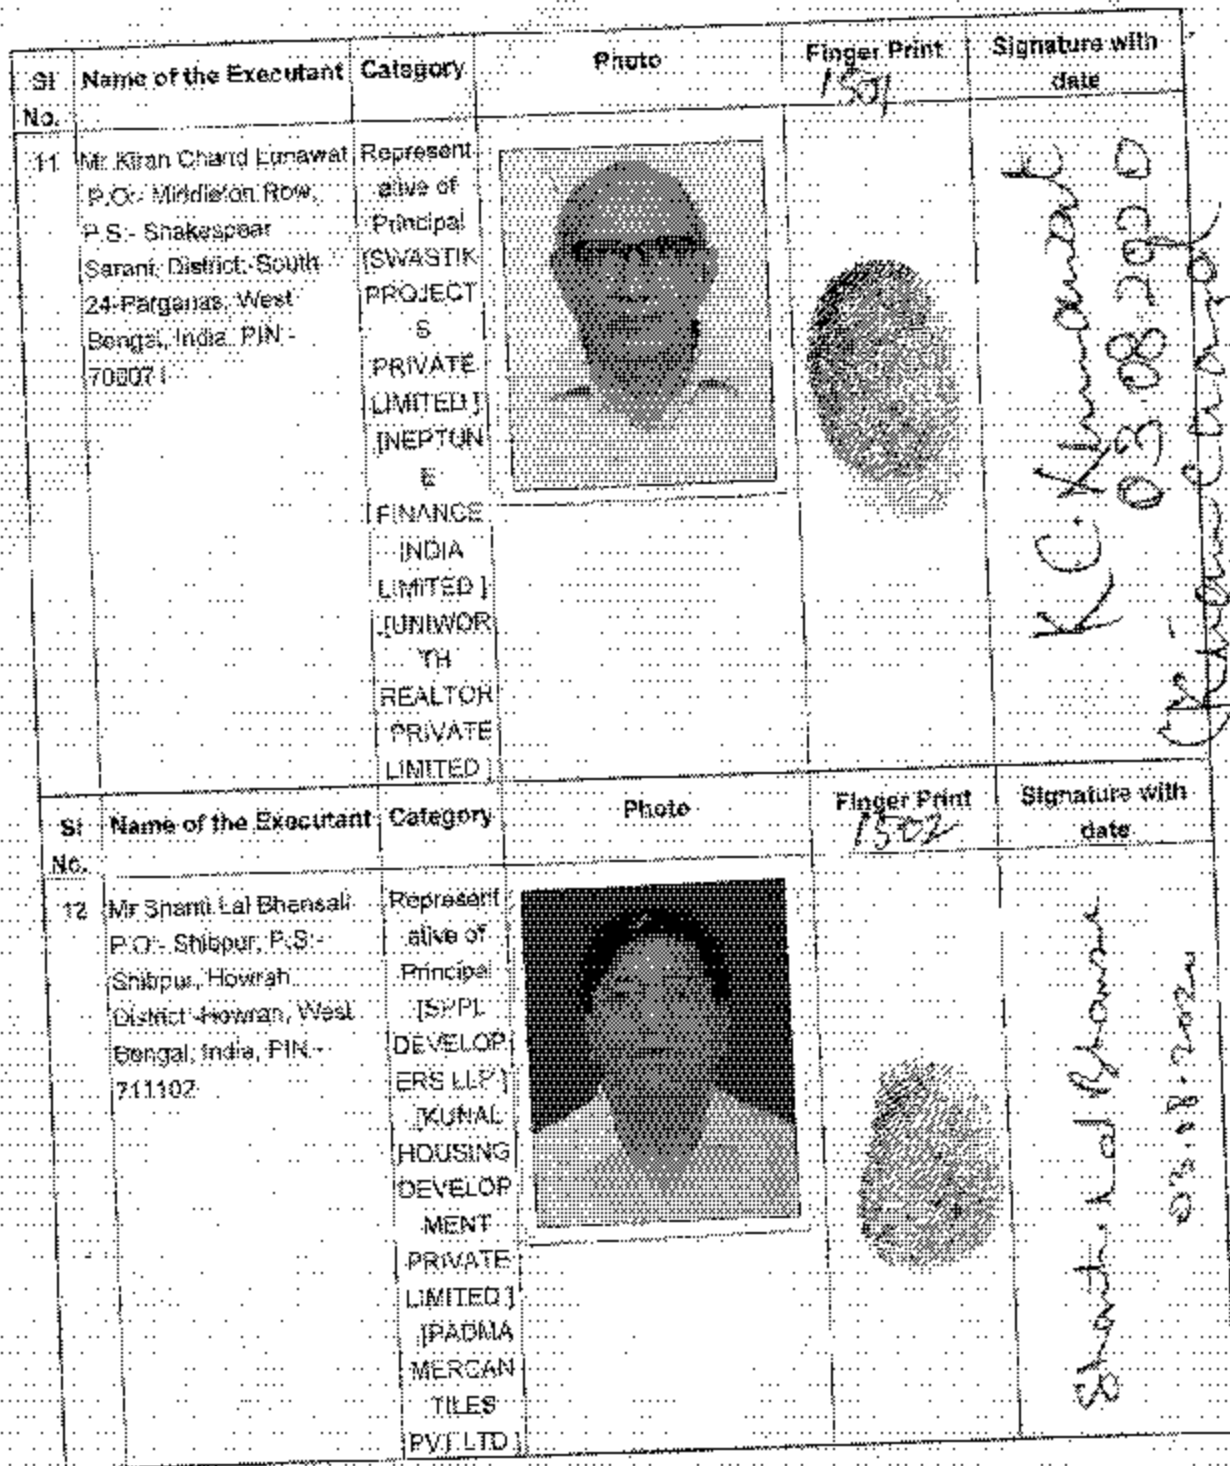 Sl No. Name of the Executant Category Photo Finger Print Signature with date
1501
11 Mr Kiran Chand Lunawat
P.O:- Middleton Row,
P.S:- Shakespear
Sarani, District:-South
24-Parganas, West
Bengal, India, PIN -
700071
Represent
ative of
Principal
[SWASTIK
PROJECT
S
PRIVATE
LIMITED ]
,[NEPTUN
E
FINANCE
INDIA
LIMITED ]
,[UNIWOR
TH
REALTOR
PRIVATE
LIMITED ]
03.08.2020
Sl No. Name of the Executant Category Photo Finger Print Signature with date
1502
12 Mr Shanti Lal Bhansali
P.O:- Shibpur, P.S:-
Shibpur, Howrah,
District:-Howrah, West
Bengal, India, PIN -
711102
Represent
ative of
Principal
[SPPL
DEVELOP
ERS LLP ]
,[KUNAL
HOUSING
DEVELOP
MENT
PRIVATE
LIMITED ]
,[PADMA
MERCAN
TILES
PVT LTD ]
Shanti Lal
03.08.2020